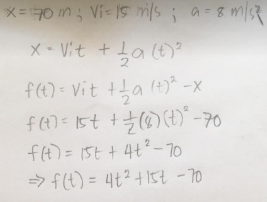 x = 70 m ; Vi = 15 m/s ; a = 8 m/s²
x = Vit + 1/2 a (t)²
f(t) = Vit + 1/2 a (t)² - x
f(t) = 15t + 1/2 (8) (t)² - 70
f(t) = 15t + 4t² - 70
⇒ f(t) = 4t² + 15t - 70